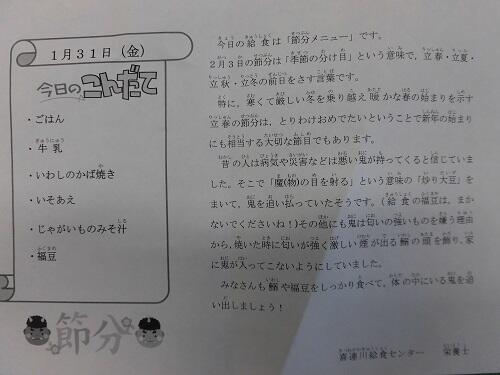 1月31日（金）
今日のこんだて
・ごはん
・牛乳
・いわしのかば焼き
・いそあえ
・じゃがいものみそ汁
・福豆
節分
今日の給食は「節分メニュー」です。
2月3日の節分は「季節の分け目」という意味で，立春・立夏・
立秋・立冬の前日をさす言葉です。
特に，寒くて厳しい冬を乗り越え暖かな春の始まりを示す
立春の節分は，とりわけおめでたいということで新年の始まり
にも相当する大切な節目でもあります。
昔の人は病気や災害などは悪い鬼が持ってくると信じていま
した。そこで「魔(物)の目を射る」という意味の「炒り大豆」を
まいて，鬼を追い払っていたそうです。（給食の福豆は，まか
ないでくださいね！）その他にも鬼は匂いの強いものを嫌う理由
から，焼いた時に匂いが強く激しい煙が出る鰯の頭を飾り，家
に鬼が入ってこないようにしていました。
みなさんも鰯や福豆をしっかり食べて，体の中にいる鬼を追
い出しましょう！
喜連川給食センター　栄養士